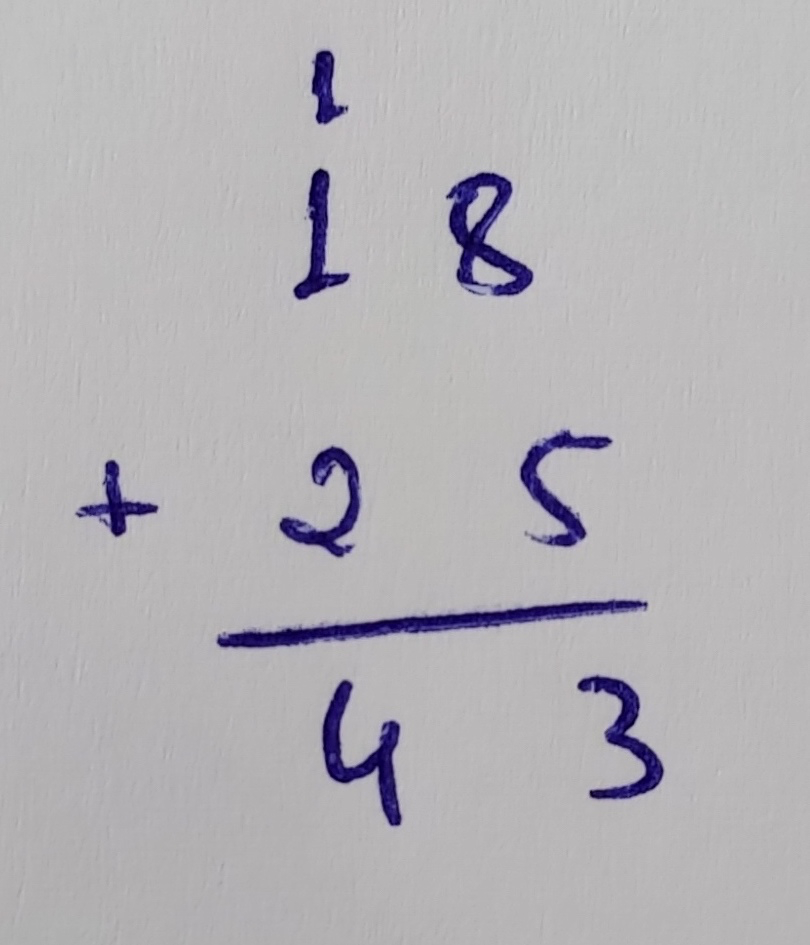 1
1 8
+ 2 5
4 3